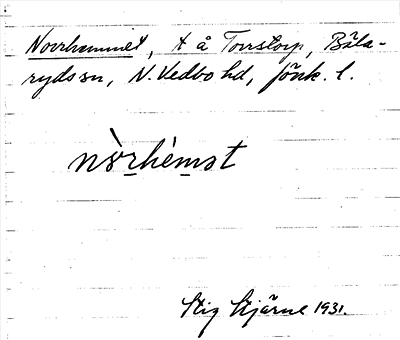 Norrhemmet, t å Torrstorp, Bäla-
rydssn, N. Vedbo hd, Jönk. l.
nòrhèmət
Stig Stjärne 1931.